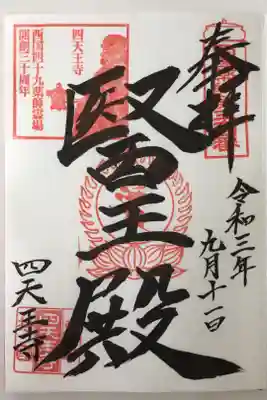 奉拝
令和三年
九月十一日
醫王殿
四天王寺
四天王寺
西国四十九薬師霊場
開創三十周年